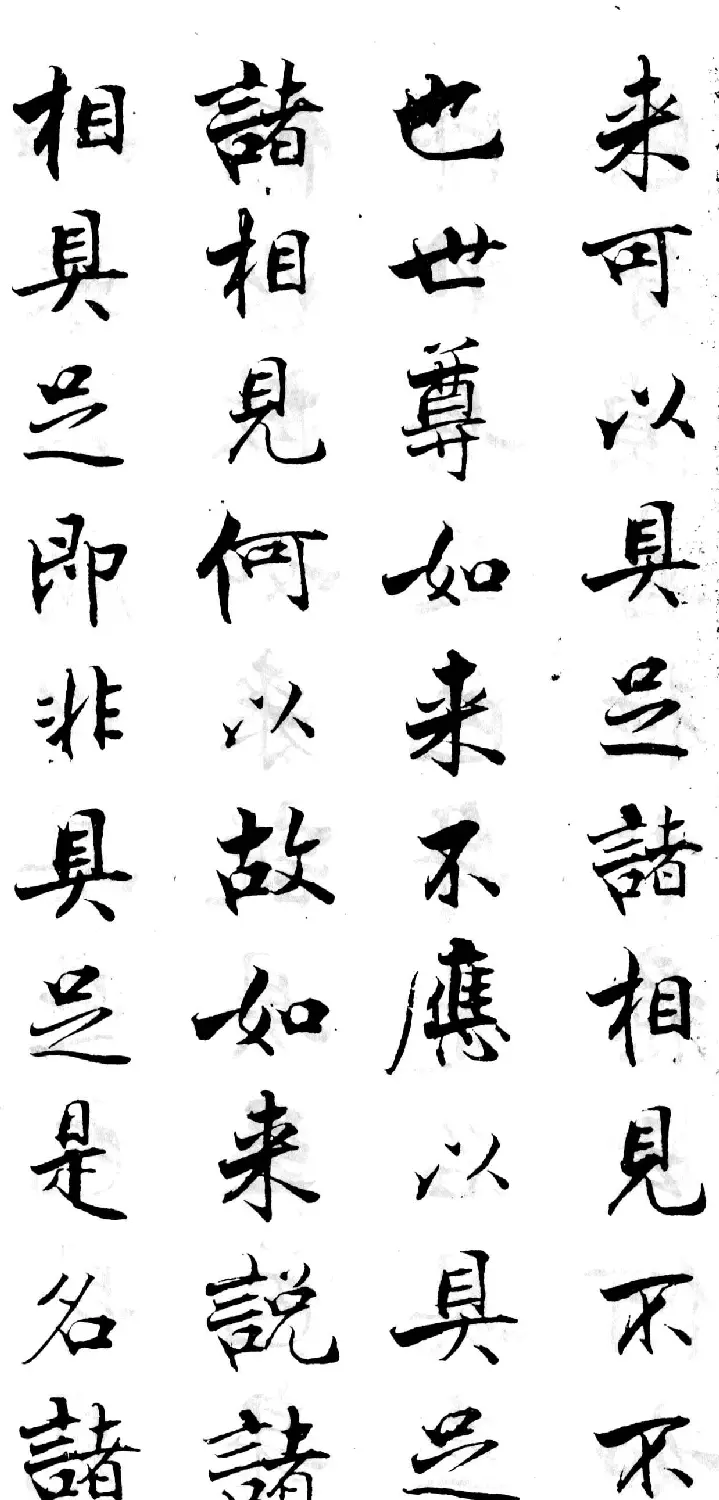 来可以具足諸相見不不
也世尊如来不應以具足
諸相見何以故如来説諸
相具足即非具足是名諸